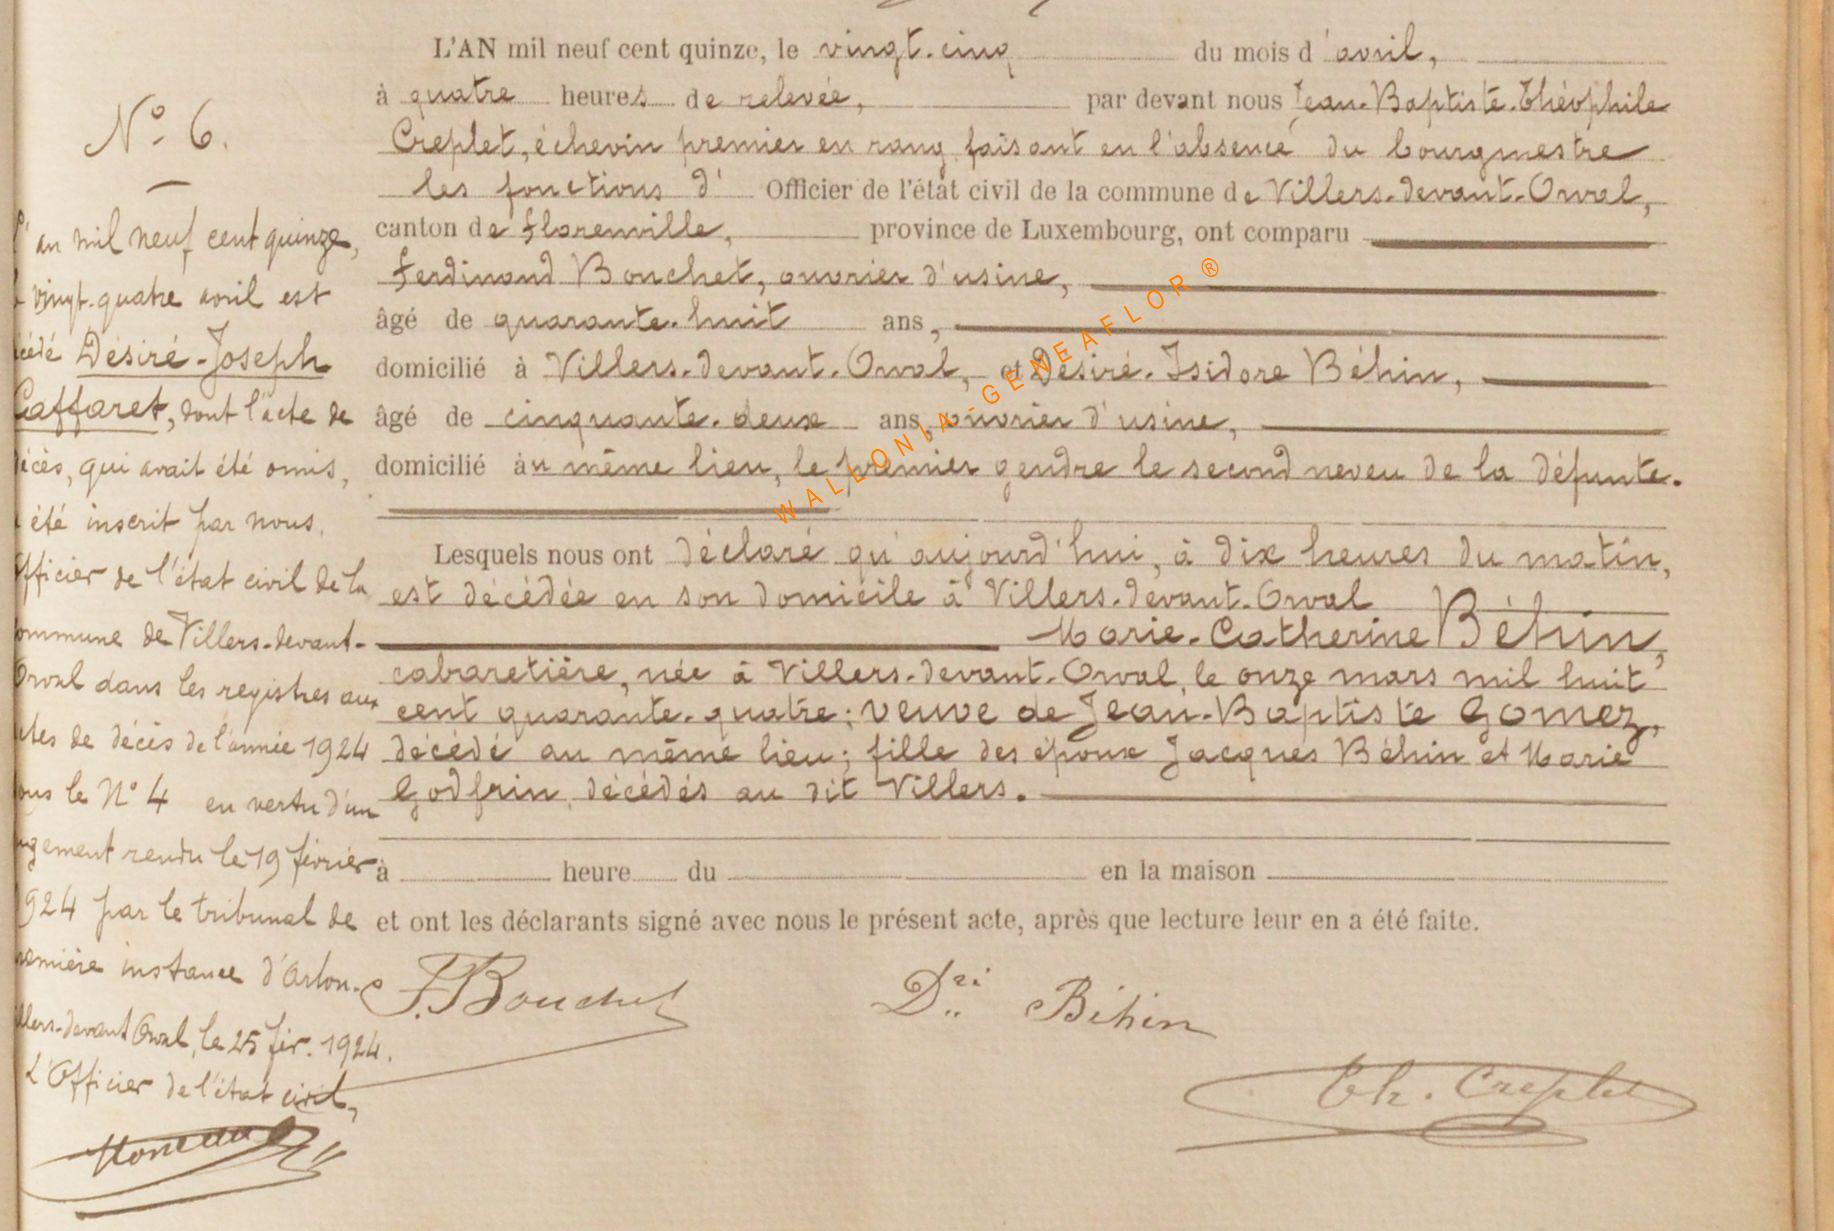 N° 6.
L'an mil neuf cent quinze,
le vingt-quatre avril est
décédé Désiré-Joseph
Gaffaret, dont l'acte de
décès, qui avait été omis,
a été inscrit par nous,
Officier de l'état civil de la
commune de Villers-devant-
Orval dans les registres aux
actes de décès de l'année 1924
sous le N° 4 en vertu d'un
jugement rendu le 19 février
1924 par le tribunal de
première instance d'Arlon.
Villers-devant Orval, le 25 fév. 1924.
L'Officier de l'état civil,
L'AN mil neuf cent quinze, le vingt-cinq du mois d'avril,
à quatre heures de relevée, par devant nous Jean-Baptiste-Théophile
Creplet, échevin premier en rang faisant en l'absence du bourgmestre
les fonctions d' Officier de l'état civil de la commune de Villers-devant-Orval,
canton de Florenville, province de Luxembourg, ont comparu
Ferdinand Bouchet, ouvrier d'usine,
âgé de quarante-huit ans,
domicilié à Villers-devant-Orval, et Désiré-Isidore Béhin,
âgé de cinquante-deux ans, ouvrier d'usine,
domicilié au même lieu, le premier gendre le second neveu de la défunte.
Lesquels nous ont déclaré qu'aujourd'hui, à dix heures du matin,
est décédée en son domicile à Villers-devant-Orval
Marie-Catherine Béhin,
cabaretière, née à Villers-devant-Orval, le onze mars mil huit
cent quarante-quatre; veuve de Jean-Baptiste Gomez,
décédé au même lieu; fille des époux Jacques Béhin et Marie
Godfrin, décédés au dit Villers.
à heure du en la maison
et ont les déclarants signé avec nous le présent acte, après que lecture leur en a été faite.
F. Bouchet Dri Béhin
Th. Creplet
WALLONIA-GENEAFLOR ®